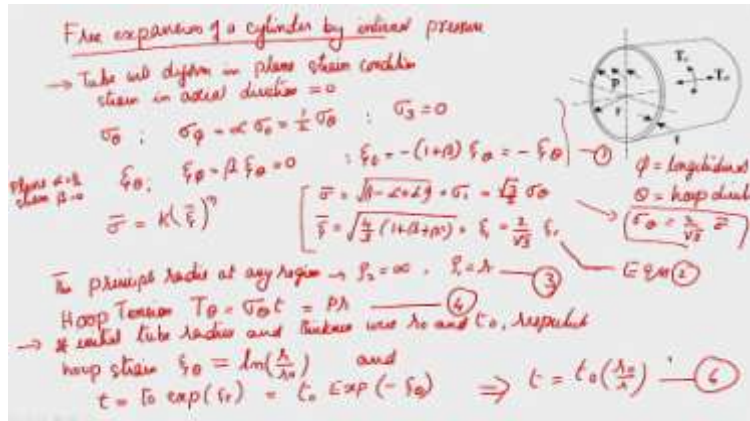 Free expansion of a cylinder by internal pressure
→ Tube will deform in plane strain condition
strain in axial direction = 0
σθ ; σφ = α σθ = ½ σθ ; σ3 = 0
plane strain β=0
ξθ ; ξφ = β ξθ = 0 ; ξt = -(1+β) ξθ = - ξθ ①
σ̄ = K(ξ̄)ⁿ
σ̄ = √(1-α+α²) · σ1 = √3/2 σθ
ξ̄ = √(4/3 (1+β+β²)) · ξ1 = 2/√3 ξ1
φ = longitudinal
θ = hoop direct
σθ = 2/√3 σ̄
Eqn ②
The principal radii at any region → ρ2 = ∞, ρ1 = r ③
Hoop Tension Tθ = σθ t = Pr ④
→ If initial tube radius and thickness were r0 and t0,
hoop strain ξθ = ln(r/r0) and
t = t0 exp(ξt) = t0 Exp(-ξθ) ⇒ t = t0(r0/r) ⑥
P
r
t